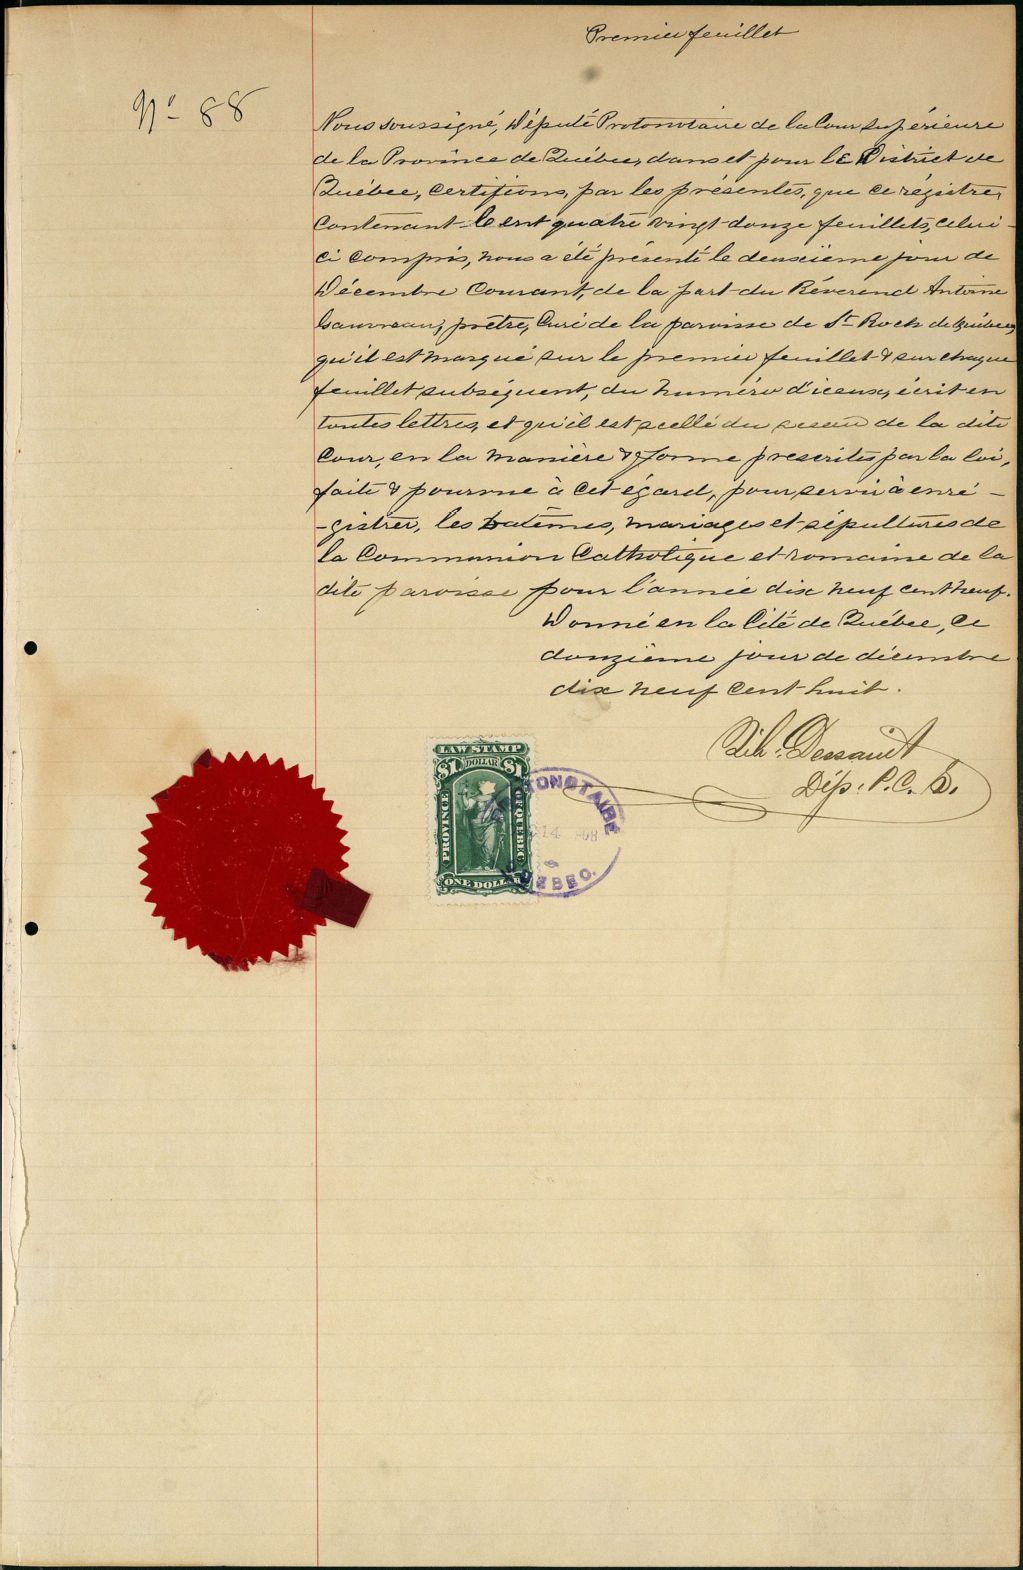 Premier feuillet
No 88
Nous soussigné, Député Protonotaire de la Cour Supérieure
de la Province de Québec, dans et pour le District de
Québec, certifions, par les présentes, que ce régistre,
contenant Cent quatre vingt-douze feuillets, celui-
ci compris, nous a été présenté le deuxième jour de
Décembre Courant, de la part du Révérend Antoine
Gauvreau, prêtre, Curé de la paroisse de St Roch de Québec,
qu'il est marqué sur le premier feuillet & sur chaque
feuillet subséquent, du numéro d'iceux, écrit en
toutes lettres, et qu'il est scellé du sceau de la dite
Cour, en la manière & forme prescrites par la loi,
faite & pourvue à cet égard, pour servir à enré-
-gistrer, les batêmes, mariages et sépultures de
la Communion Catholique et romaine de la
dite paroisse pour l'année dix neuf cent neuf.
Donné en la Cité de Québec, ce
douzième jour de décembre
dix neuf cent huit.
Dessault
Dép. P. C. S.
LAW STAMP
$1 DOLLAR $1
PROVINCE
OF QUEBEC
ONE DOLLAR
TONOTAIRE
14
08
QUEBEC.